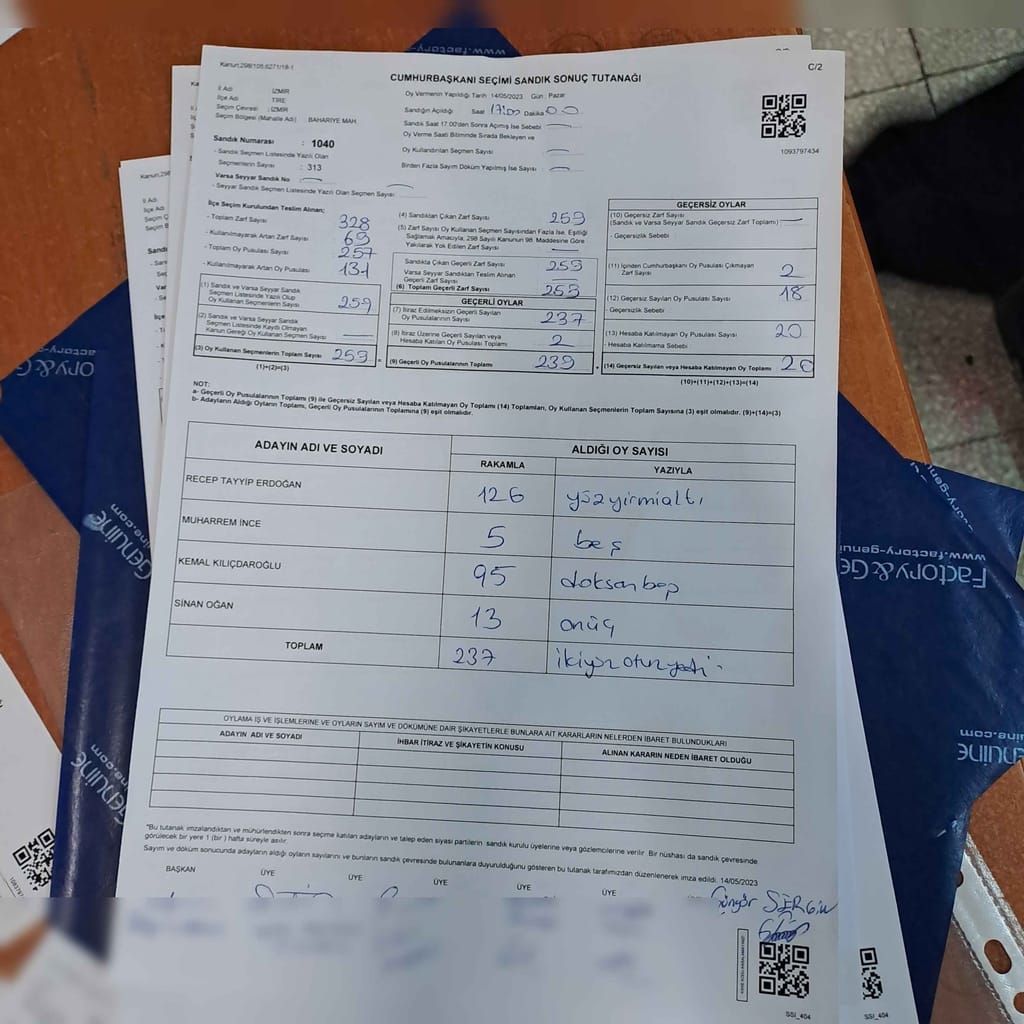 Kanun:298/105;6271/18-1
C/2
CUMHURBAŞKANI SEÇİMİ SANDIK SONUÇ TUTANAĞI
İl Adı : İZMİR
İlçe Adı : TİRE
Seçim Çevresi : İZMİR
Seçim Bölgesi (Mahalle Adı) : BAHARİYE MAH.
Sandık Numarası : 1040
- Sandık Seçmen Listesinde Yazılı Olan
Seçmenlerin Sayısı : 313
Varsa Seyyar Sandık No
- Seyyar Sandık Seçmen Listesinde Yazılı Olan Seçmen Sayısı
Oy Vermenin Yapıldığı Tarih : 14/05/2023 Gün : Pazar
Sandığın Açıldığı Saat 17:00 Dakika 00
Sandık Saat 17:00'den Sonra Açılmış İse Sebebi
Oy Verme Saati Bitiminde Sırada Bekleyen ve
Oy Kullandırılan Seçmen Sayısı
Birden Fazla Sayım Döküm Yapılmış İse Sayısı
1093797434
İlçe Seçim Kurulundan Teslim Alınan;
- Toplam Zarf Sayısı 328
- Kullanılmayarak Artan Zarf Sayısı 69
- Toplam Oy Pusulası Sayısı
- Kullanılmayarak Artan Oy Pusulası 131
(1) Sandık ve Varsa Seyyar Sandık
Seçmen Listesinde Yazılı Olup
Oy Kullanan Seçmenlerin Sayısı 259
(2) Sandık ve Varsa Seyyar Sandık
Seçmen Listesinde Kayıtlı Olmayan
Kanun Gereği Oy Kullanan Seçmen Sayısı
(3) Oy Kullanan Seçmenlerin Toplam Sayısı 259
(1)+(2)=(3)
(4) Sandıktan Çıkan Zarf Sayısı 259
(5) Zarf Sayısı Oy Kullanan Seçmen Sayısından Fazla İse, Eşitliği
Sağlamak Amacıyla, 298 Sayılı Kanunun 98. Maddesine Göre
Yakılarak Yok Edilen Zarf Sayısı
Sandıkta Çıkan Geçerli Zarf Sayısı 259
Varsa Seyyar Sandıktan Teslim Alınan
Geçerli Zarf Sayısı
(6) Toplam Geçerli Zarf Sayısı 259
GEÇERLİ OYLAR
(7) İtiraz Edilmeksizin Geçerli Sayılan
Oy Pusulalarının Sayısı 237
(8) İtiraz Üzerine Geçerli Sayılan veya
Hesaba Katılan Oy Pusulası Toplamı 2
(9) Geçerli Oy Pusulalarının Toplamı 239
GEÇERSİZ OYLAR
(10) Geçersiz Zarf Sayısı
(Sandık ve Varsa Seyyar Sandık Geçersiz Zarf Toplamı)
- Geçersizlik Sebebi
(11) İçinden Cumhurbaşkanı Oy Pusulası Çıkmayan
Zarf Sayısı 2
(12) Geçersiz Sayılan Oy Pusulası Sayısı 18
Geçersizlik Sebebi
(13) Hesaba Katılmayan Oy Pusulası Sayısı 20
- Hesaba Katılmama Sebebi
(14) Geçersiz Sayılan veya Hesaba Katılmayan Oy Toplamı
(10)+(11)+(12)+(13)=(14)
NOT:
a- Geçerli Oy Pusulalarının Toplamı (9) ile Geçersiz Sayılan veya Hesaba Katılmayan Oy Toplamı (14) Toplamları, Oy Kullanan Seçmenlerin Toplam Sayısına (3) eşit olmalıdır. (9)+(14)=(3)
b- Adayların Aldığı Oyların Toplamı, Geçerli Oy Pusulalarının Toplamına (9) eşit olmalıdır.
ADAYIN ADI VE SOYADI ALDIĞI OY SAYISI
RAKAMLA YAZIYLA
RECEP TAYYİP ERDOĞAN 126 yüzyirmialtı
MUHARREM İNCE 5 beş
KEMAL KILIÇDAROĞLU 95 doksanbeş
SİNAN OĞAN 13 onüç
TOPLAM 237 ikiyüzotuzyedi
OYLAMA İŞ VE İŞLEMLERİNE VE OYLARIN SAYIM VE DÖKÜMÜNE DAİR ŞİKAYETLERLE BUNLARA AİT KARARLARIN NELERDEN İBARET BULUNDUKLARI
ADAYIN ADI VE SOYADI İHBAR İTİRAZ VE ŞİKAYETİN KONUSU ALINAN KARARIN NEDEN İBARET OLDUĞU
*Bu tutanak imzalandıktan ve mühürlendikten sonra seçime katılan adayların ve talep eden siyasi partilerin sandık kurulu üyelerine veya gözlemcilerine verilir. Bir nüshası da sandık çevresinde
görülecek bir yere 1 (bir) hafta süreyle asılır.
Sayım ve döküm sonucunda adayların aldığı oyların sayılarını ve bunların sandık çevresinde bulunanlara duyurulduğunu gösteren bu tutanak tarafımızdan düzenlenerek imza edildi. 14/05/2023
BAŞKAN ÜYE ÜYE ÜYE ÜYE ÜYE
Güngör SERGİN
SSI_404
SSI_404
Genuine
Factory&Ge
www.factory-genui